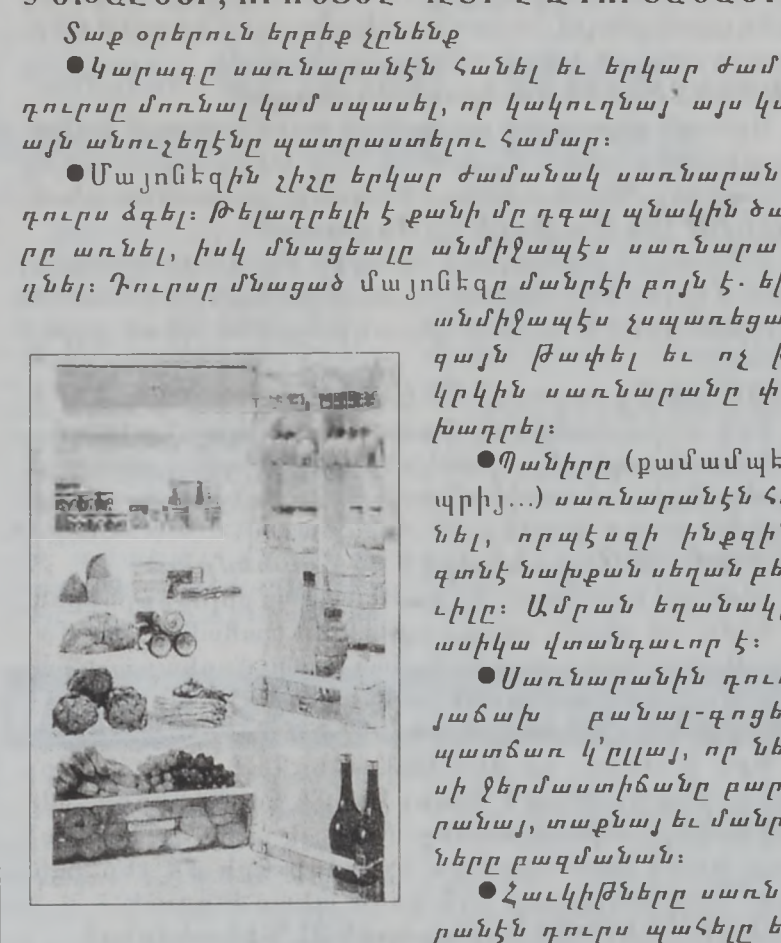 Տաք օրերուն երբեք չընենք
●Կարագը սառնարանէն հանել եւ երկար ժամ
դուրսը մոռնալ կամ սպասել, որ կակուղնայ այս կ
այն անուշեղէնը պատրաստելու համար:
●Մայոնէզին շիշը երկար ժամանակ սառնարան
դուրս ձգել: Թելադրելի է քանի մը դգալ պնակին ծա
րը առնել, իսկ մնացեալը անմիջապէս սառնարա
դնել: Դուրսը մնացած մայոնէզը մանրէի բոյն է. ե
անմիջապէս չսպառեցա
զայն թափել եւ ոչ
կրկին սառնարանը փ
խադրել:
●Պանիրը (քամամպէ
պրիյ...) սառնարանէն հ
նել, որպէսզի ինքզի
գտնէ նախքան սեղան բե
ւիլը: Ամրան եղանակ
ասիկա վտանգաւոր է:
●Սառնարանին դու
յաճախ բանալ-գոցե
պատճառ կ՚ըլլայ, որ նե
սի ջերմաստիճանը բար
րանայ, տաքնայ եւ մանր
ները բազմանան:
●Հաւկիթները սառն
րանէն դուրս պահելը